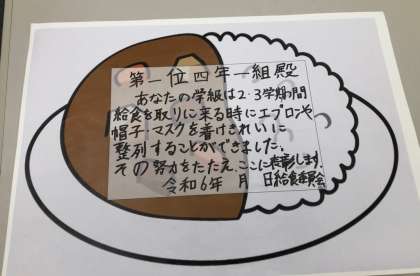 第一位四年一組殿
あなたの学級は2・3学期の間
給食を取りに来る時にエプロンや
帽子マスクを着けきれいに
整列することができました。
その努力をたたえ、ここに表彰します。
令和6年 月 日給食委員会